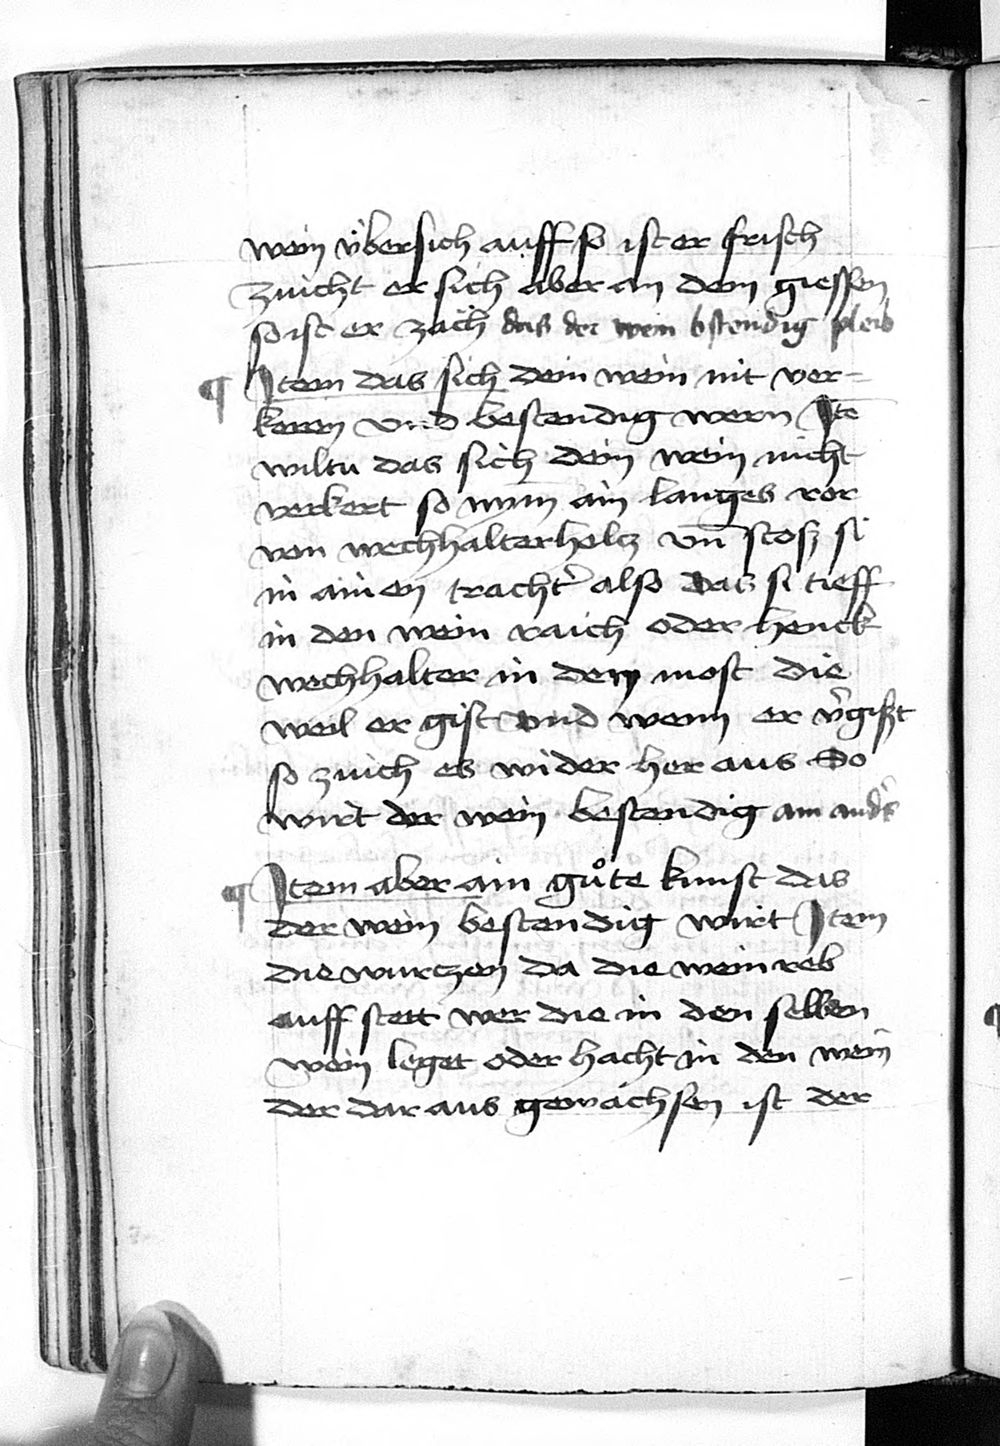 wein v̈bersich auff so ist er frisch
zuicht er sich aber an dem giessen
so ist er zäch das der wein bstendig pleib
¶ Item das sich dein wein nit ver=
keren vnd bestendig wern Itē
wiltu das sich dein wein nicht
verkert so nym̄ ain langes ror
von wechhalterholcz vn̄ stosz si
in ainen tracht̄ also das si tieff
in den wein raich oder henck
wechhalter in den most die
weil er gist vnd wenn er v̄giszt
so zuich es wider her aus So
wirt der wein bestendig am and̄s
¶ Item aber ain gůte kunst das
der wein bestendig wirt Item
die wurczen da die weinreb
auff stett wer die in den selben
wein leget oder hacht in den wein
der dar aus gewachsen ist der